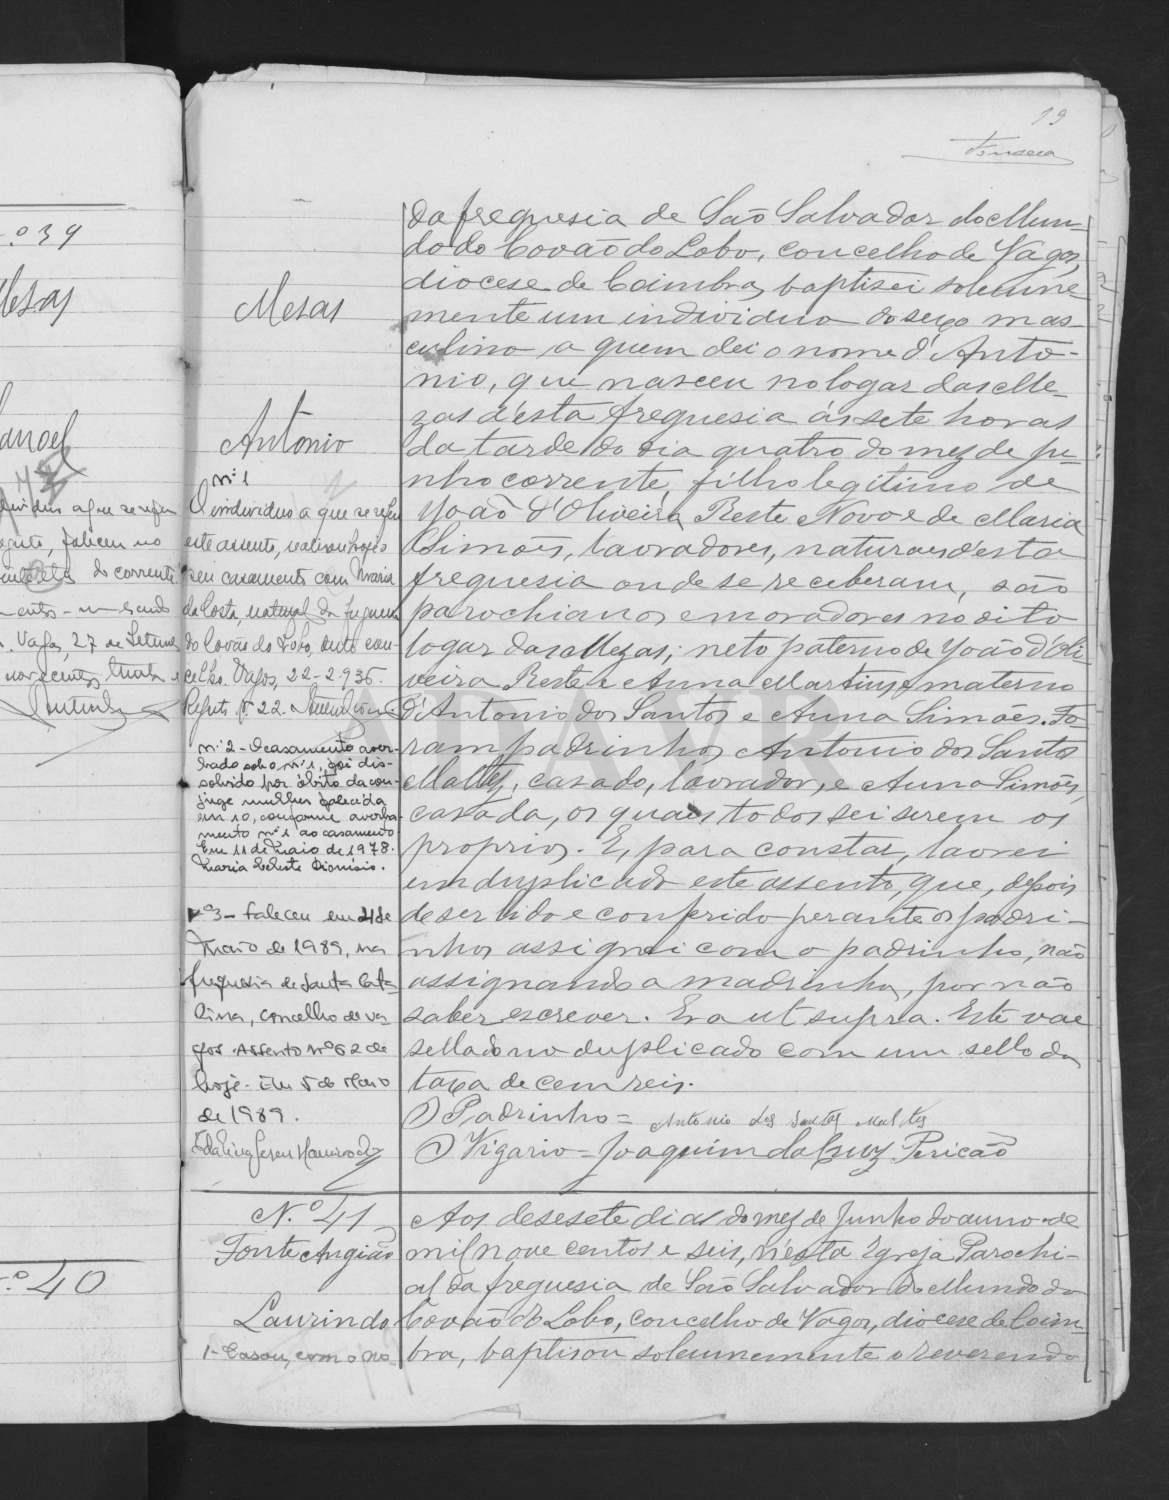 19
Fonseca
da freguesia de São Salvador do Mun-
do do Covão do Lobo, concelho de Vagos,
diocese de Coimbra, baptisei solemne-
mente um individuo do sexo mas-
culino a quem dei o nome d'Anto-
nio, que nasceu no logar das Me-
zas d'esta freguesia ás sete horas
da tarde do dia quatro do mez de ju-
nho corrente, filho legitimo de
João d'Oliveira Reste Novo e de Maria
Simões, lavradores, naturaes d'esta
freguesia onde se receberam, são
parochianos e moradores no dito
logar das Mezas; neto paterno de João d'Oli-
veira Reste e Anna Martins, e materno
d'Antonio dos Santos e Anna Simões. Fo-
ram padrinhos Antonio dos Santos
Maltez, casado, lavrador, e Anna Simões,
casada, os quaes todos sei serem os
proprios. E, para constar, lavrei
em duplicado este assento, que, depois
de ser lido e conferido perante os padri-
nhos assignei com o padrinho, não
assignando a madrinha, por não
saber escrever. Era ut supra. Este vae
sellado no duplicado com um sello da
taxa de cem reis.
O Padrinho = Antonio dos Santos Maltes
O Vigario = Joaquim da Cruz Pericão
Mesas
Antonio
nº 1
O individuo a que se refere
este assento, realisou hoje o
seu casamento com Maria
da Costa, natural da freguesia
do Covão do Lobo, deste con-
celho. Vagos, 22-2-936.
Registo nº 22.
nº 2 - O casamento aver-
bado sob o nº 1, foi dis-
solvido por óbito da con-
juge mulher falecida
em 10, conforme averba-
mento nº 1 ao casamento
Em 11 de Maio de 1978.
Maria Celeste Dionísio.
Nº 3 - Faleceu em 4 de
Maio de 1989, na
freguesia de Santa Cata-
rina, concelho de Va-
gos. Assento nº 62 de
hoje. Em 5 de Maio
de 1989.
N.º 41
Fonte Angião
Laurindo
1- Casou, com o
Aos desesete dias do mez de Junho do anno de
mil nove centos e seis, n'esta Egreja Parochi-
al da freguesia de São Salvador do Mundo do
Covão do Lobo, concelho de Vagos, diocese de Coim-
bra, baptisou solemnemente o reverendo
º 39
Mesas
Manoel
faliceu no
do corrente
Vagos, 27 de Setem
º 40
ADAVR